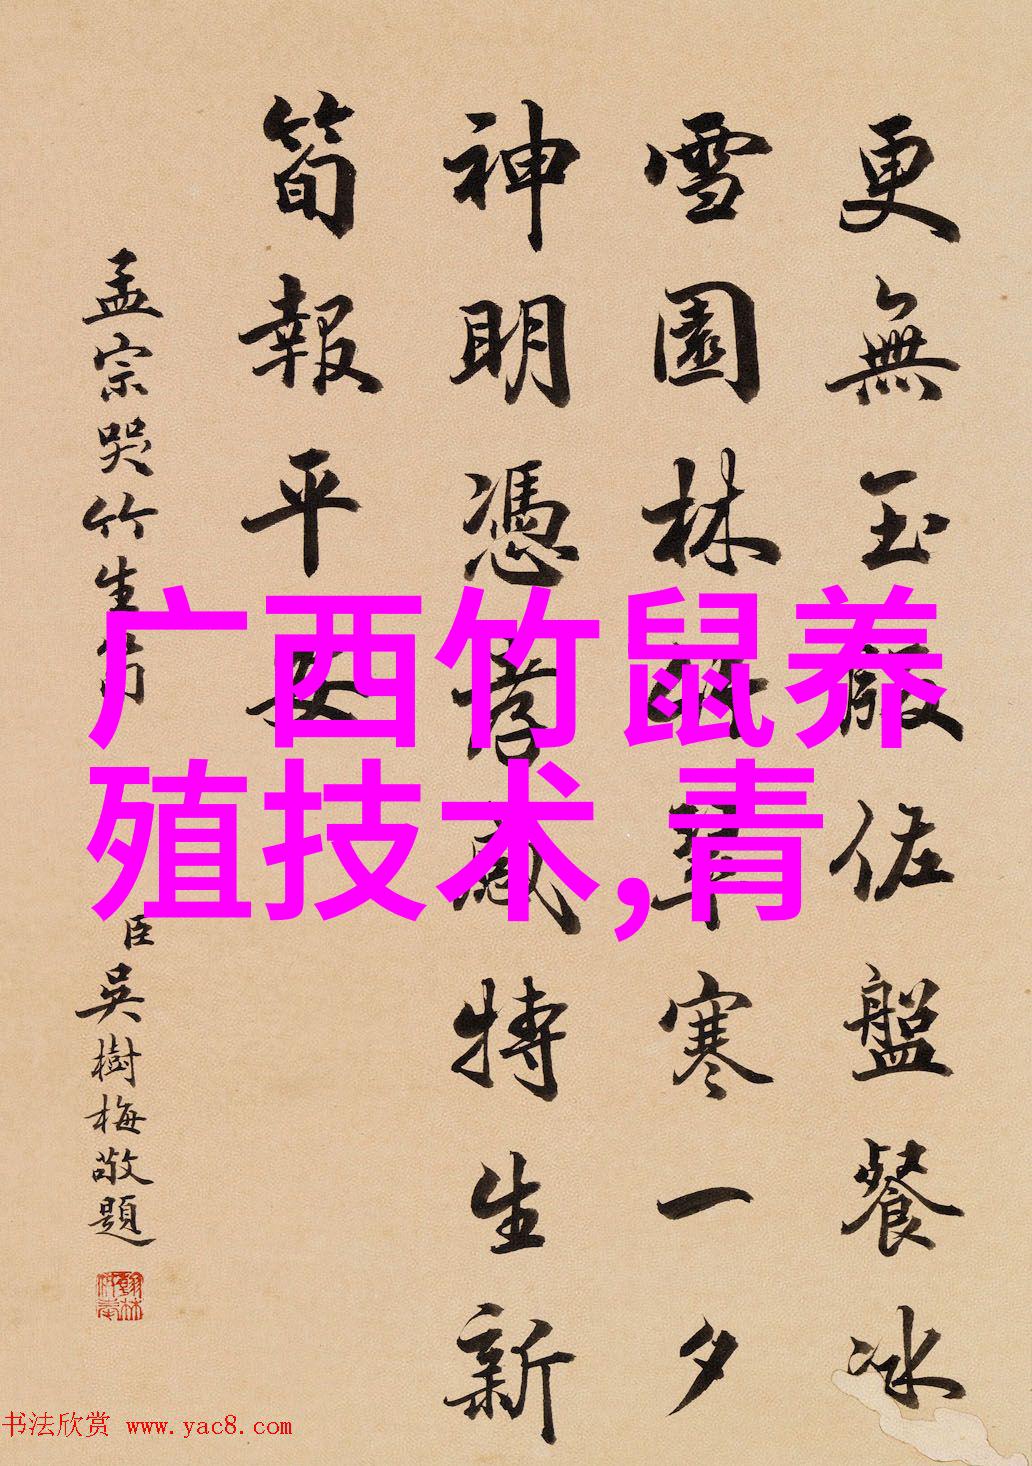 更無玉版佐盤餐冰
雪園林寒一夕
神明憑孝感特生新
筍報平安
孟宗哭竹生筍
臣吳樹梅敬題
广西竹鼠养
殖技术,青
书法欣赏 www.yac8.com